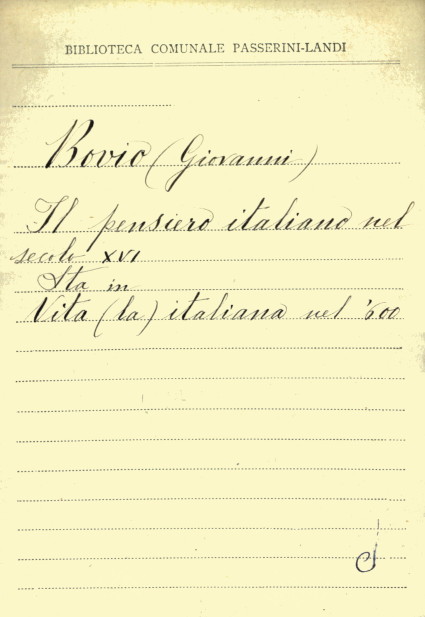 BIBLIOTECA COMUNALE PASSERINI-LANDI
Bovio (Giovanni)
Il pensiero italiano nel
secolo XVI
Sta in
Vita (la) italiana nel '600